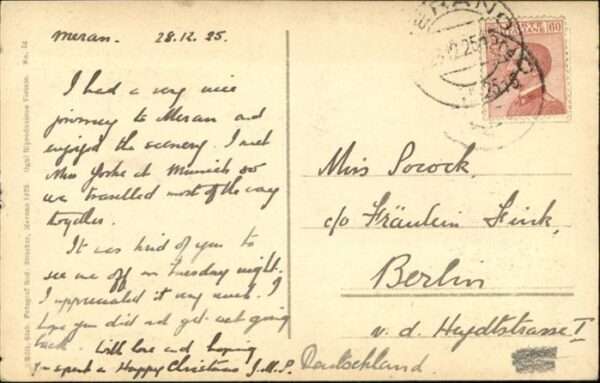 Meran. 28.12.25.
I had a very nice
journey to Meran and
enjoyed the scenery. I met
Miss Yorke at Munich so
we travelled most of the way
together.
It was kind of you to
see me off on Tuesday night.
I appreciated it very much. I
hope you did not get wet going
back. With love and hoping
you spent a Happy Christmas J.M.P.
MERANO
60
Miss Pocock,
c/o Fräulein Fink,
Berlin
v. d. Heydtstrasse I
Deutschland